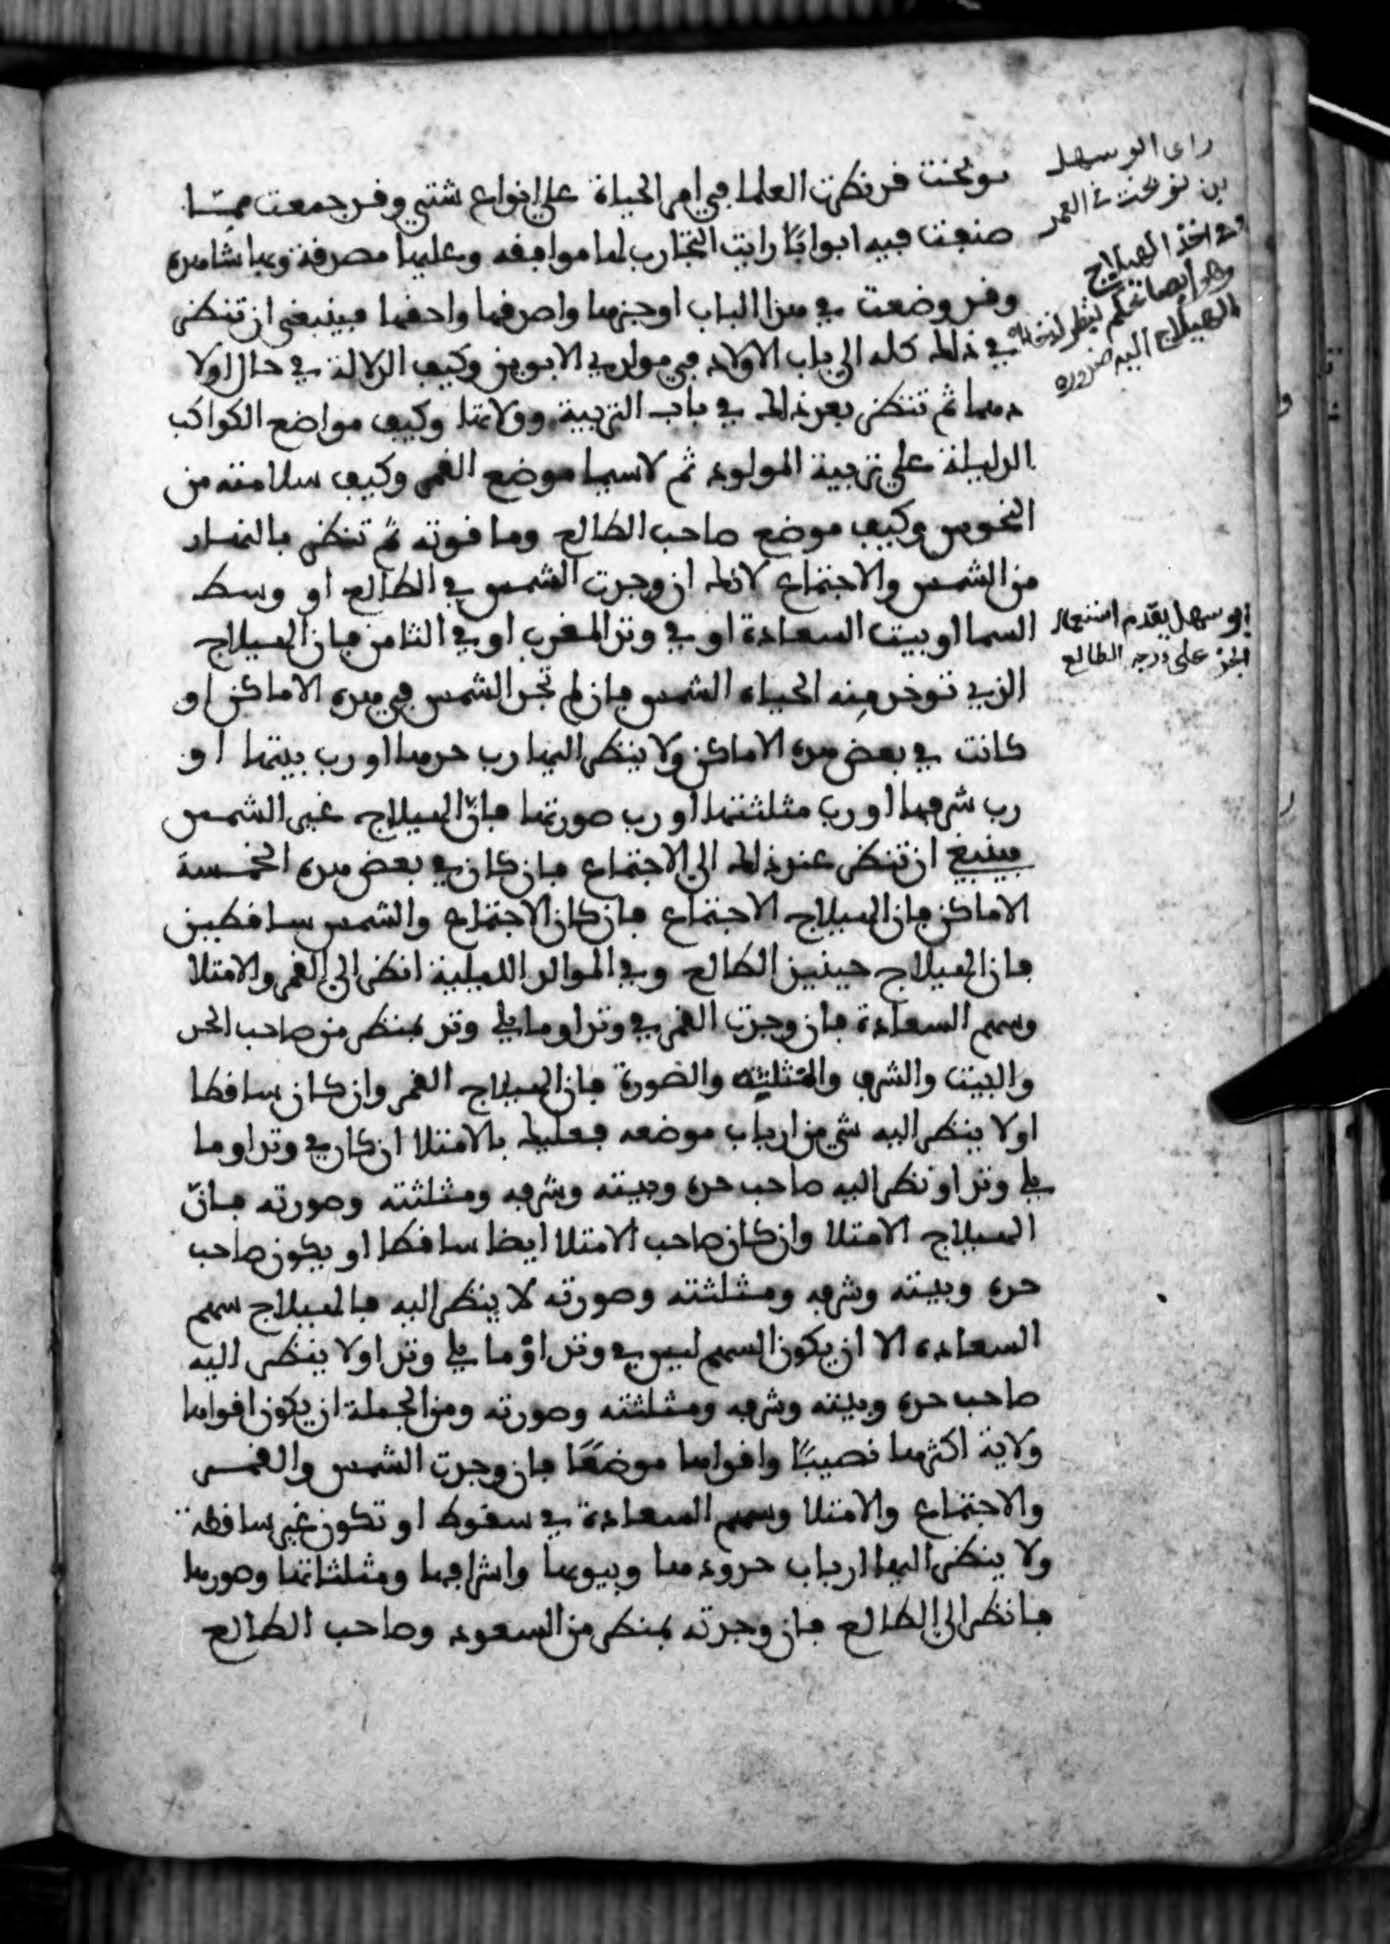 نوبخت قد نظرت العلما في امر الحياة على انواع شتى وقد جمعت مما
صنفت فيه ابوابًا رايت التجارب لها موافقه وعليها مصرفة وبها شاهده
وقد وضعت في هذا الباب اوجزها واصدقها واحقها فينبغى ان تنظر
في ذلك كله الى باب الاولاد في مواليد الابوين وكيف الدلالة في حال اولا
دهما ثم تنظر بعد ذلك في باب التربية وولاتها وكيف مواضع الكواكب
الدليلة على تربية المولود ثم لاسيما موضع القمر وكيف سلامته من
النحوس وكيف موضع صاحب الطالع وما قوته ثم تنظر بالنهار
من الشمس والاجتماع لانك ان وجدت الشمس في الطالع او وسط
السما او بيت السعادة او في وتد المغرب او في الثامن فان الهيلاج
الذي توخد منه الحياه الشمس فان لم تجد الشمس في هذه الاماكن او
كانت في بعض هذه الاماكن ولا ينظر اليها رب حدها او رب بيتها او
رب شرفها او رب مثلثتها او رب صورتها فانّ الهيلاج غير الشمس
فينبغي ان تنظر عند ذلك الى الاجتماع فان كان في بعض هذه الخمسة
الاماكن فان الهيلاج الاجتماع فان كان الاجتماع والشمس ساقطين
فان الهيلاج حينيذ الطالع وفي المواليد الليلية انظر الى القمر والامتلا
وسهم السعادة فان وجدت القمر في وتد او ما يلي وتد بمنظر من صاحب الحد
والبيت والشرف والمثلثه والصورة فان الهيلاج القمر وان كان ساقطا
او لا ينظر اليه شي من ارباب موضعه فعليك بالامتلا ان كان في وتد او ما
يلي وتد او نظر اليه صاحب حده وبيته وشرفه ومثلثته وصورته فانّ
الهيلاج الامتلا وان كان صاحب الامتلا ايضا ساقطا او يكون صاحب
حده وبيته وشرفه ومثلثته وصورته لا ينظر اليه فالهيلاج سهم
السعاده الا ان يكون السهم ليس في وتد اوْ ما يلي وتد او لا ينظر اليه
صاحب حده وبيته وشرفه ومثلثته وصورته ومن الجملة ان يكون اقواها
ولاية اكثرها نصيبًا واقواها موضعًا فان وجدت الشمس والقمر
والاجتماع والامتلا وسهم السعادة في سقوط او تكون غير ساقطة
ولا ينظر اليها ارباب حدودها وبيوتها واشرافها ومثلثاتها وصورها
فانظر الى الطالع فان وجدته بمنظر من السعود وصاحب الطالع
راى ابو سهل
بن نوبخت في العمر
وفي اخذ الهيلاج
وهو ايضا
الهيلاج اليه ضروره
ابو سهل يقدم استعمال
الجز على درجه الطالع